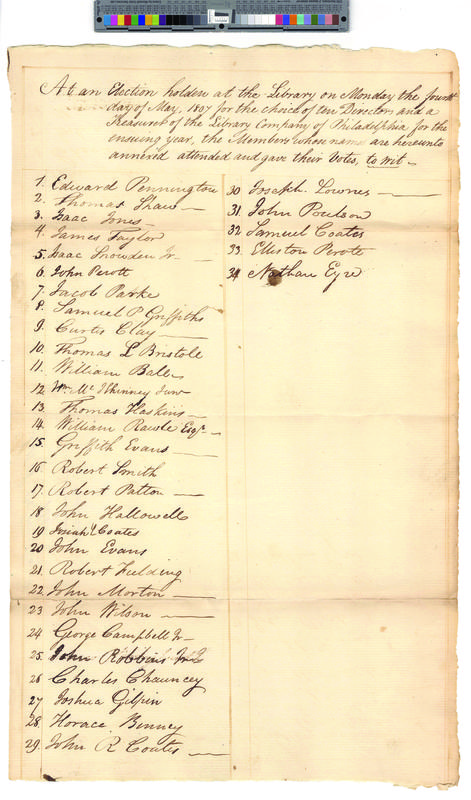 At an Election holden at the Library on Monday the fourth
day of May, 1807 for the choice of ten Directors and a
Treasurer of the Library Company of Philadelphia for the
ensuing year, the Members whose names are hereunto
annexed attended and gave their Votes, to wit
1. Edward Pennington
2. Thomas Shaw
3. Isaac Jones
4. James Taylor
5. Isaac Snowden Jr
6. John Perott
7. Jacob Parke
8. Samuel P Griffitts
9. Curtis Clay
10. Thomas L Bristoll
11. William Ball
12 Wm. Mc Ilhinney Junr
13. Thomas Haskins
14. William Rawle Esqr
15. Griffith Evans
16 Robert Smith
17. Robert Patton
18 John Hallowell
19 Josiah L Coates
20 John Evans
21. Robert Fielding
22. John Morton
23 John Wilson
24 George Campbell Jr
25. John Robbins Jr
26 Charles Chauncey
27 Joshua Gilpin
28. Horace Binney
29. John R Coates
30 Joseph Lownes
31 John Poulson
32 Samuel Coates
33. Elliston Perote
34 Nathan Eyre